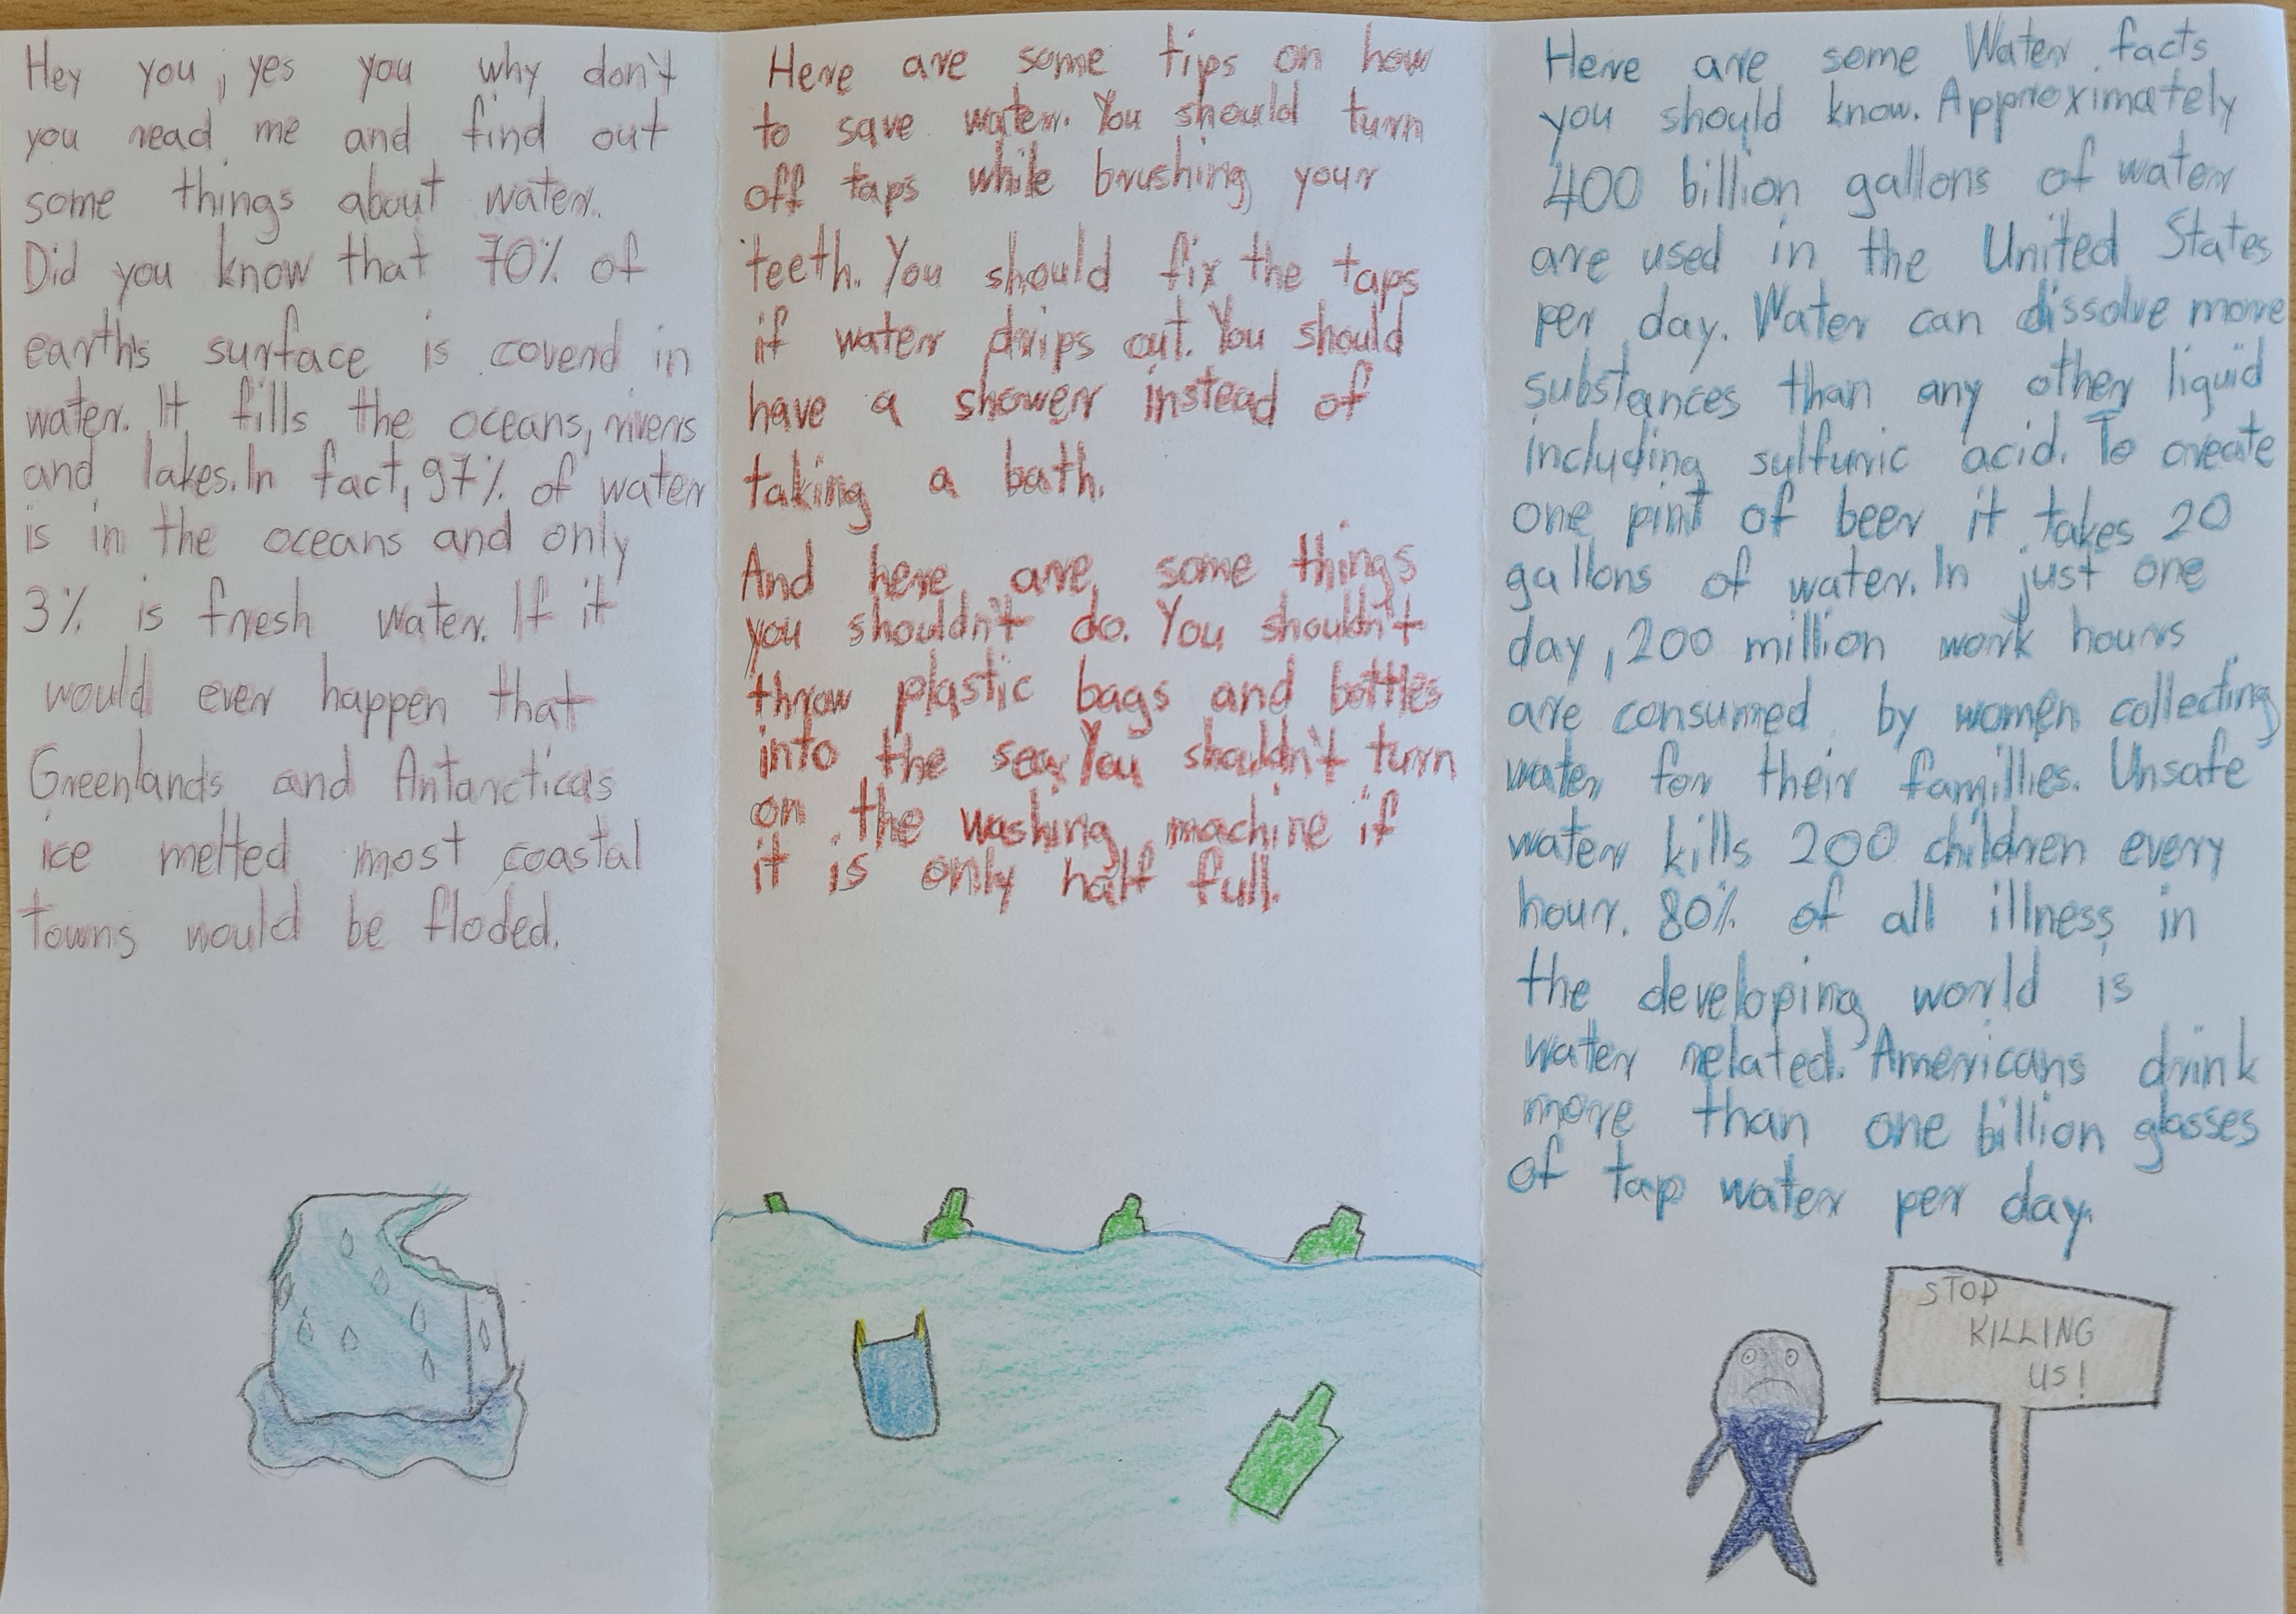 Hey you, yes you why don't
you read me and find out
some things about water.
Did you know that 70% of
earth's surface is coverd in
water. It fills the oceans, rivers
and lakes. In fact, 97% of water
is in the oceans and only
3% is fresh water. If it
would ever happen that
Greenlands and Antarcticas
ice melted most coastal
towns would be floded.
Here are some tips on how
to save water. You should turn
off taps while brushing your
teeth. You should fix the taps
if water drips out. You should
have a shower instead of
taking a bath.
And here are some things
you shouldn't do. You shouldn't
throw plastic bags and bottles
into the sea. You shouldn't turn
on the washing machine if
it is only half full.
Here are some Water facts
you should know. Approximately
400 billion gallons of water
are used in the United States
per day. Water can dissolve more
substances than any other liquid
including sulfuric acid. To create
one pint of beer it takes 20
gallons of water. In just one
day, 200 million work hours
are consumed by women collecting
water for their famillies. Unsafe
water kills 200 children every
hour. 80% of all illness in
the developing world is
water related. Americans drink
more than one billion glasses
of tap water per day.
STOP
KILLING
US!